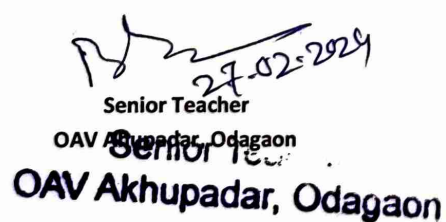 27-02-2024
Senior Teacher
OAV Akhupadar, Odagaon
Senior
OAV Akhupadar, Odagaon